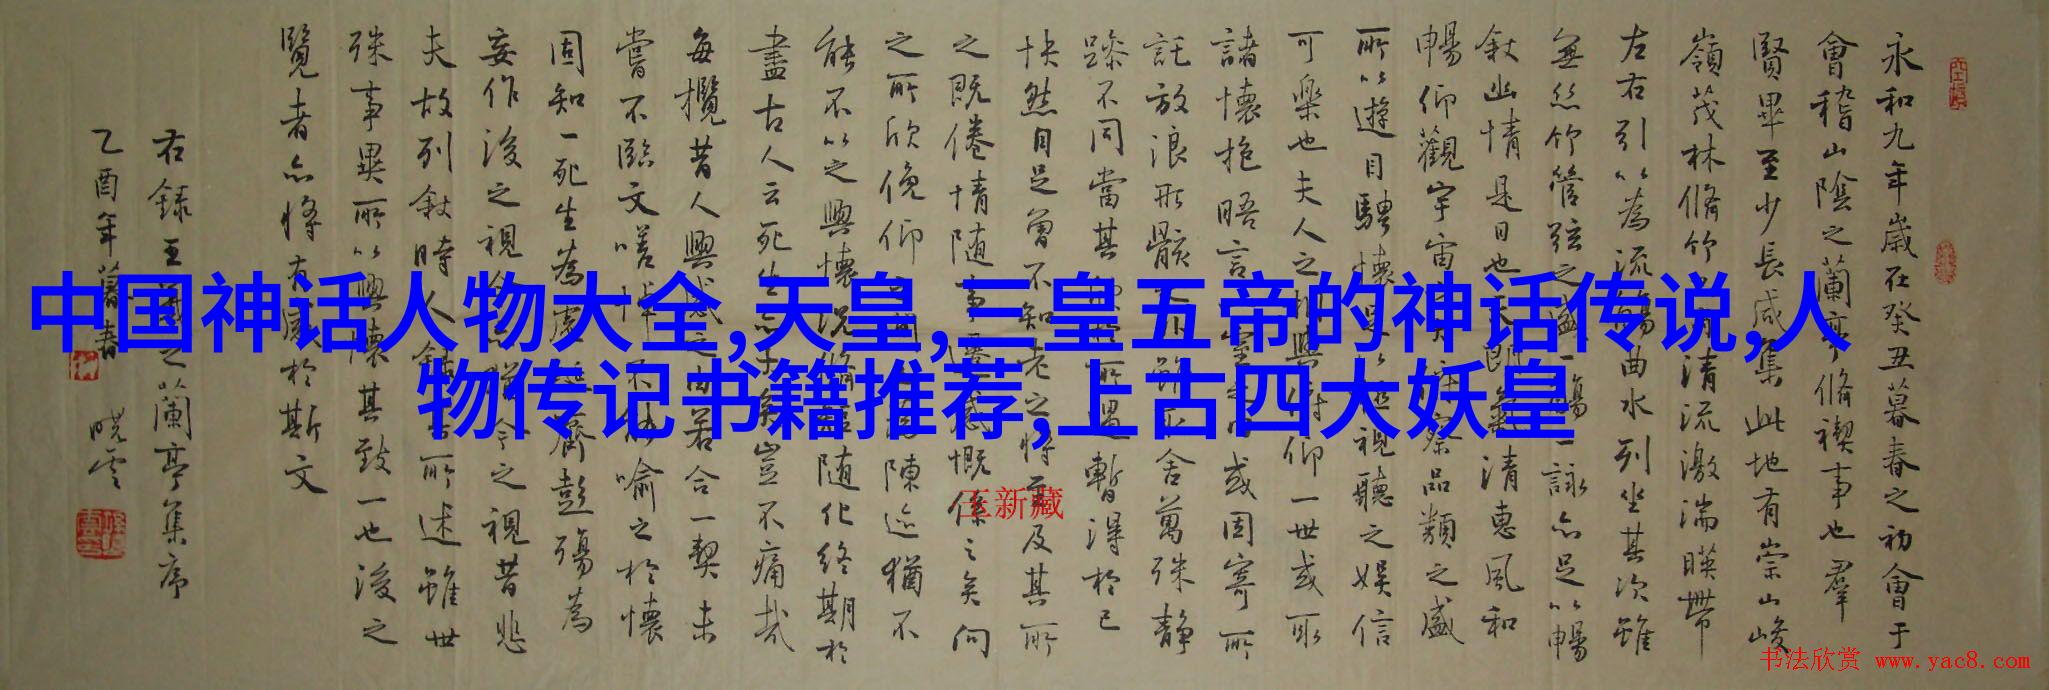 中国神话人物大全,天皇,三皇五帝的神话传说,人
物传记书籍推荐,上古四大妖皇
永和九年歲在癸丑暮春之初會于
會稽山陰之蘭亭脩禊事也群
賢畢至少長咸集此地有崇山峻
嶺茂林脩竹清流激湍暎帶
左右引以為流觴曲水列坐其次雖
無絲竹管弦之盛一觴一詠亦足以暢
敘幽情是日也天朗氣清惠風和
暢仰觀宇宙察品類之盛
所以遊目騁懷足以極視聽之娛信
可樂也夫人之相與俯仰一世或取
諸懷抱晤言一室之內或因寄所
託放浪形骸之外雖取舍萬殊靜
躁不同當其欣於所遇暫得於己
快然自足曾不知老之將至及其所
之既倦情随事遷感慨係之矣向
之所欣俛仰之間以為陳迹猶不
能不以之興懷況脩短随化終期於
盡古人云死生亦大矣豈不痛哉
每攬昔人興感之由若合一契未
嘗不臨文嗟悼不能喻之於懷
固知一死生為虛誕齊彭殤為
妄作後之視今亦猶今之視昔悲
夫故列敘時人錄其所述雖世
殊事異所以興懷其致一也後之
覽者亦將有感於斯文
右錄王羲之蘭亭集序
乙酉年暮春 曉雲
王新藏
书法欣赏 www.yac8.com